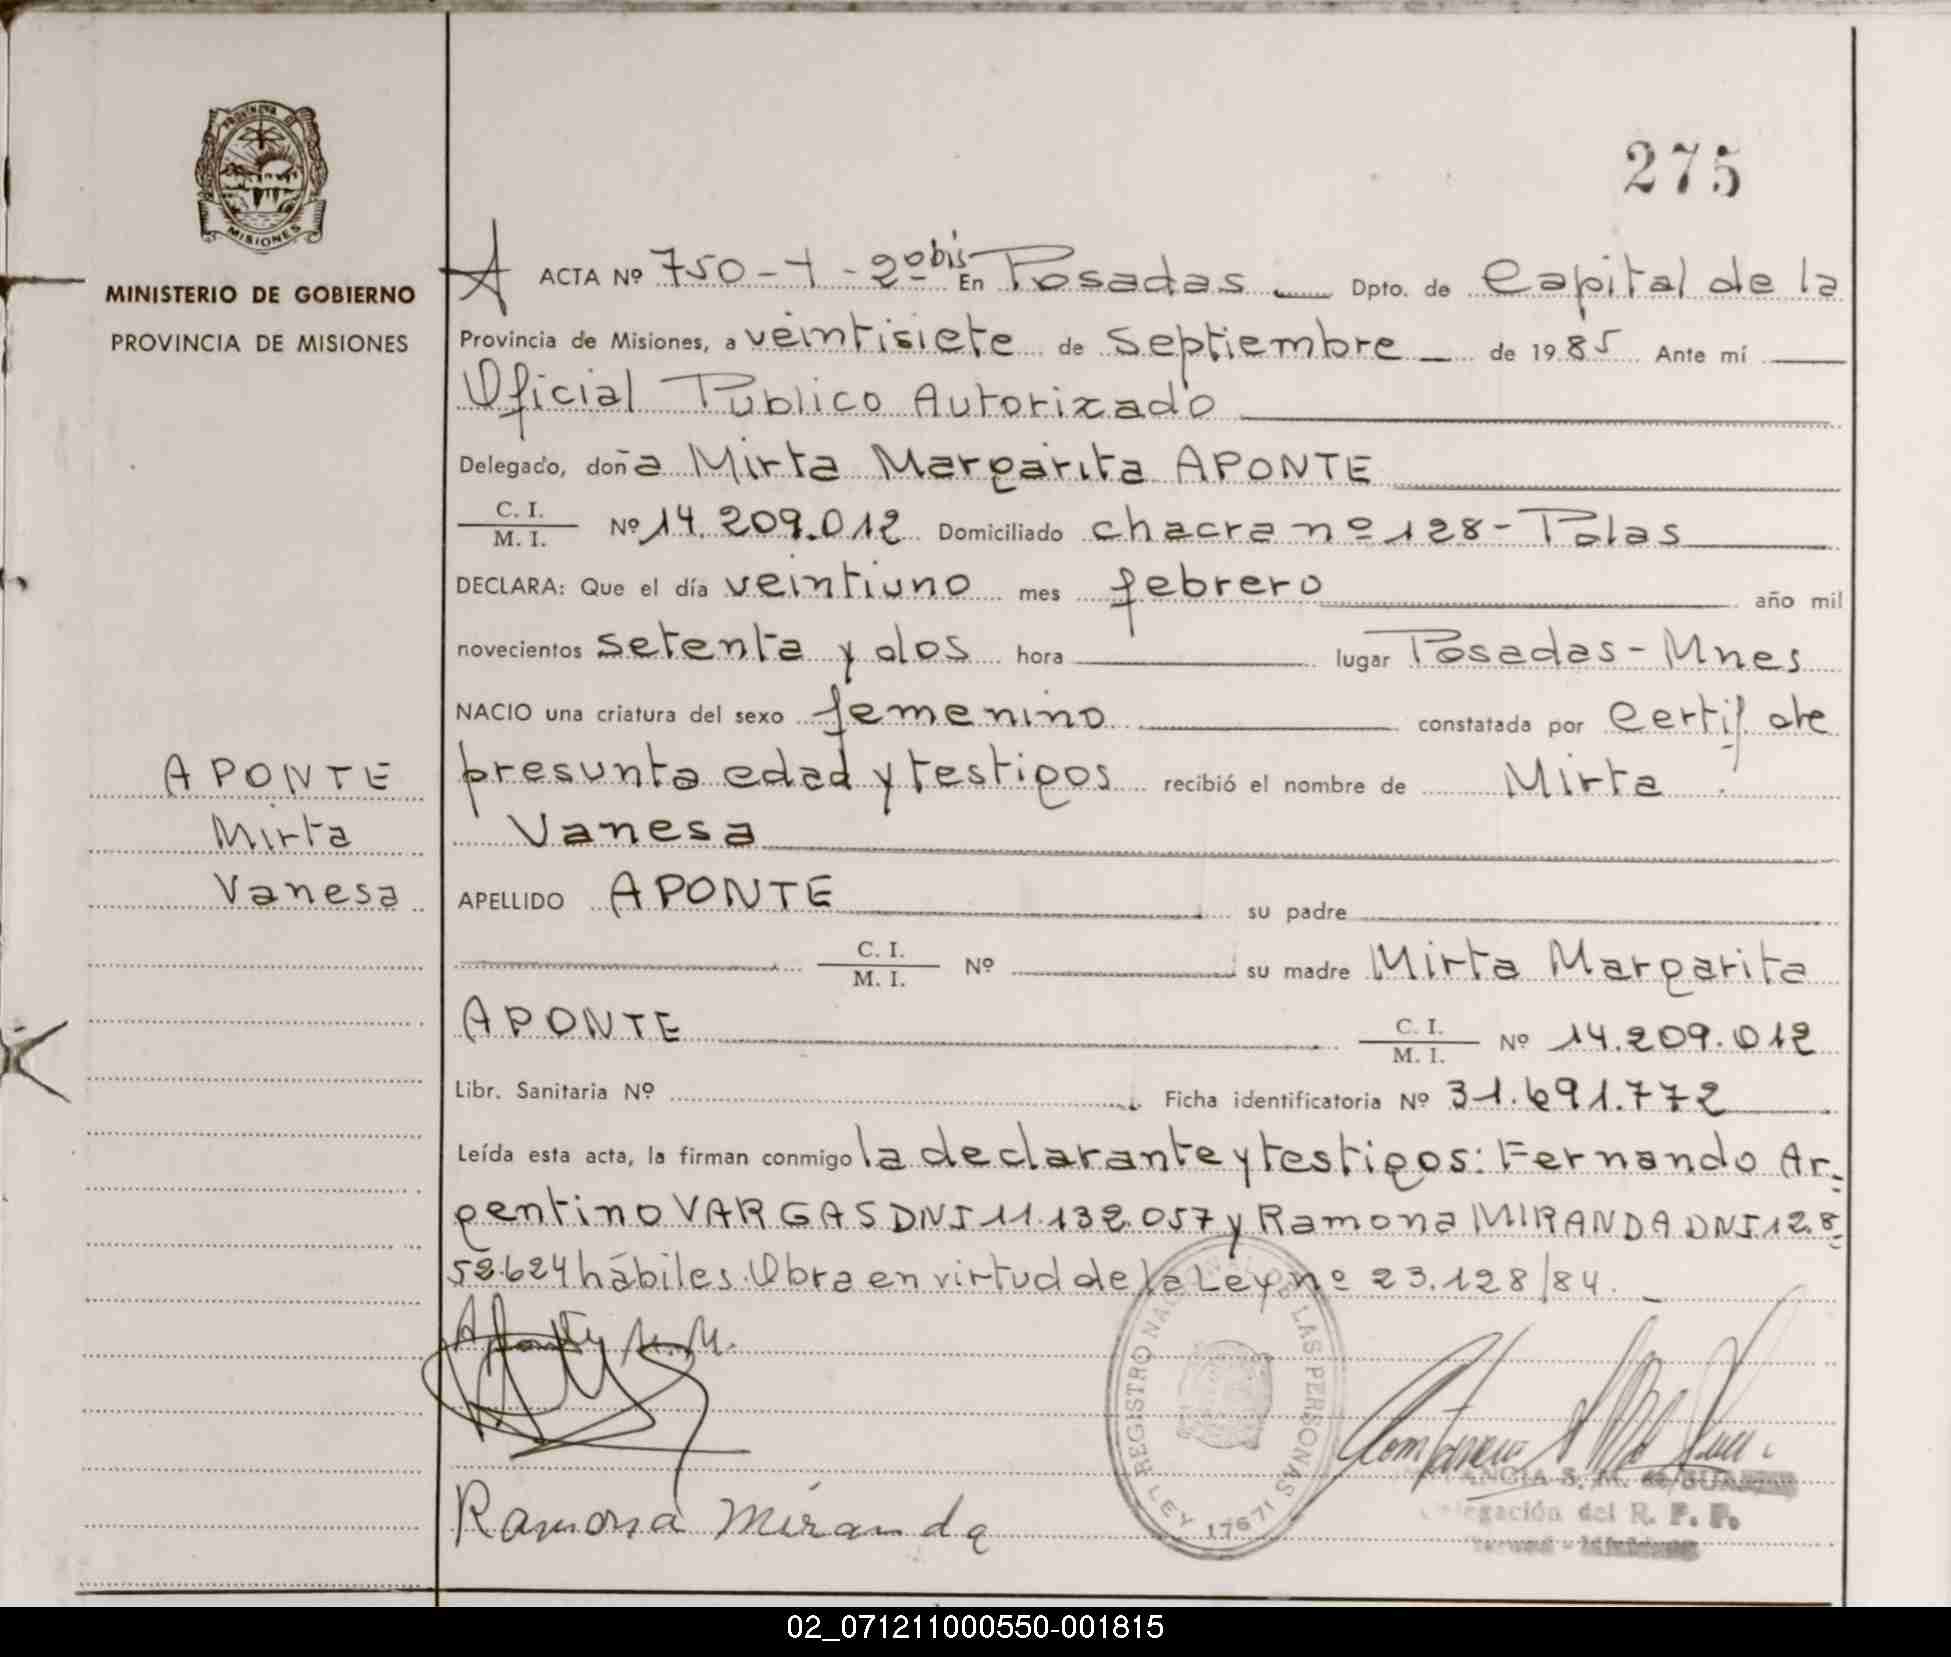 PROVINCIA DE
MISIONES
MINISTERIO DE GOBIERNO
PROVINCIA DE MISIONES
275
A ACTA Nº 750-T-2º bis En Posadas Dpto. de Capital de la
Provincia de Misiones, a veintisiete de septiembre de 1985 Ante mí
Oficial Público Autorizado
Delegado, doña Mirta Margarita APONTE
C. I.
M. I. Nº 14.209.012 Domiciliado chacra nº 128-Pdas
DECLARA: Que el día veintiuno mes febrero año mil
novecientos setenta y dos hora lugar Posadas-Mnes
NACIO una criatura del sexo femenino constatada por Certif. de
presunta edad y testigos recibió el nombre de Mirta
Vanesa
APELLIDO APONTE su padre
C. I.
M. I. Nº su madre Mirta Margarita
APONTE C. I.
M. I. Nº 14.209.012
Libr. Sanitaria Nº Ficha identificatoria Nº 31.691.772
Leída esta acta, la firman conmigo la declarante y testigos: Fernando Ar-
gentino VARGAS DNI 11.132.057 y Ramona MIRANDA DNI 12.8-
52.624 hábiles. Obra en virtud de la Ley nº 23.128/84.
APONTE
Mirta
Vanesa
Aponte M. M.
Ramona Miranda
REGISTRO NACIONAL DE LAS PERSONAS
LEY 17671
Delegación del R. P. P.
02_071211000550-001815